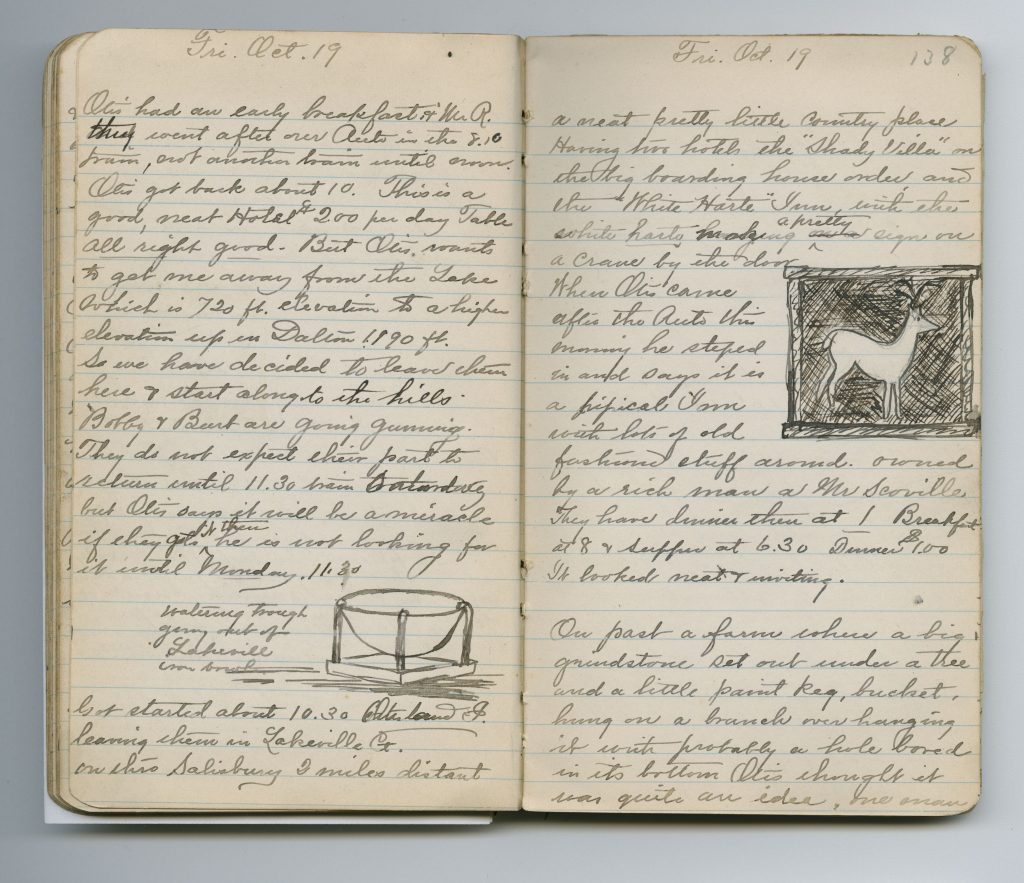 Fri. Oct. 19
Otis had an early breakfast & Mr R.
they went after our Auto in the 8.10
train, not another train until noon.
Otis got back about 10. This is a
good, neat Hotel $2.00 per day Table
all right good. But Otis wants
to get me away from the Lake
which is 720 ft. elevation to a higher
elevation up in Dalton 1190 ft.
So we have decided to leave them
here & start along to the hills.
Bobby & Burt are going gunning.
They do not expect their part to
return until 11.30 train Saturday
but Otis says it will be a miracle
if they get it then he is not looking for
it until Monday. 11.30
watering trough
going out of
Lakeville
iron bowl
Got started about 10.30 Otis and I
leaving them in Lakeville Ct.
on thro Salisbury 2 miles distant
Fri. Oct. 19
138
a neat pretty little country place
Having two hotels the "Shady Villa" on
the big boarding house order and
the "White Harte" Inn, with the
white harte making a pretty sign on
a crane by the door
When Otis came
after the Auto this
morning he steped
in and says it is
a pipical Inn
with lots of old
fashion stuff around. owned
by a rich man a Mr Scoville.
They have dinner then at 1 Breakfast
at 8 & supper at 6.30 Dinner $1.00
It looked neat & inviting.
On past a farm where a big
grindstone set out under a tree
and a little paint keg, bucket,
hung on a branch over hanging
it with probably a hole bored
in its bottom Otis thought it
was quite an idea, one man